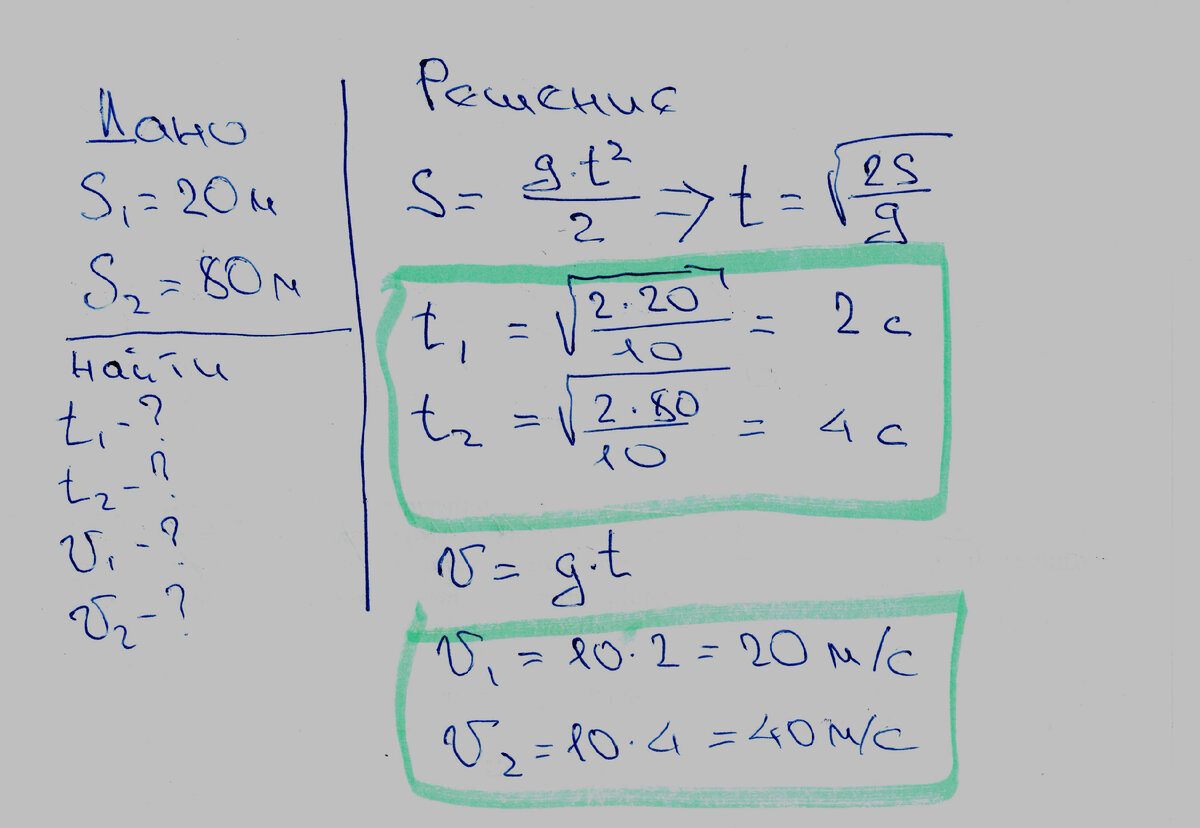 Дано
S₁ = 20 м
S₂ = 80 м
Найти
t₁ - ?
t₂ - ?
v₁ - ?
v₂ - ?
Решение
S = g·t²/2 ⇒ t = √(2S/g)
t₁ = √(2·20/10) = 2 с
t₂ = √(2·80/10) = 4 с
v = g·t
v₁ = 10·2 = 20 м/с
v₂ = 10·4 = 40 м/с